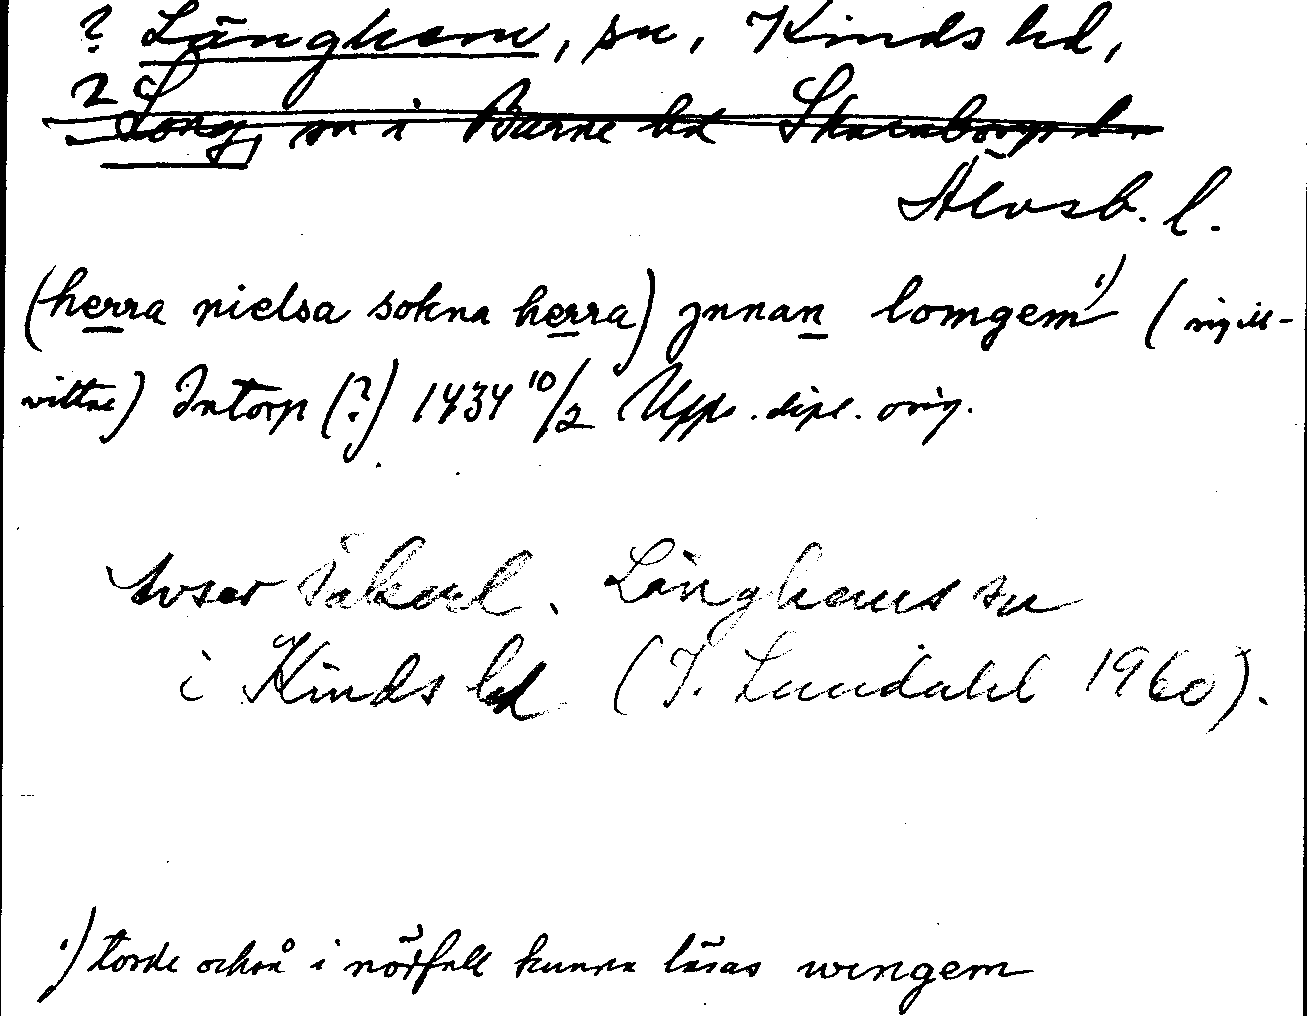 ? Länghem, sn, Kinds hd,
? Long, sn i Barne hd Skaraborgs l.
Älvsb. l.
(herra nielsa sokna herra) jnnan lomgem¹) (sigill-
vittne) Intorp (?) 1434 10/2 Upps. dipl. orig.
avser säkerl. Länghems sn
i Kinds hd (I. Lundahl 1960).
¹) torde också i nödfall kunna läsas wengem